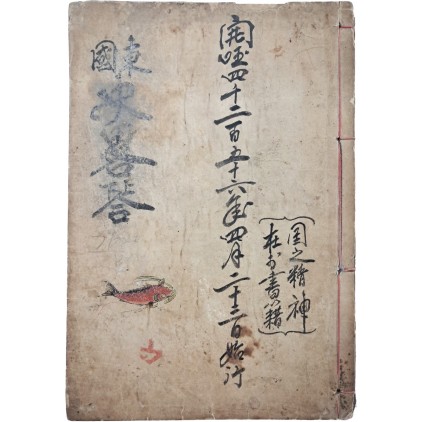 国之精神
在於書籍
開 四千二百五十六年四月二十三日始行
東國史 答